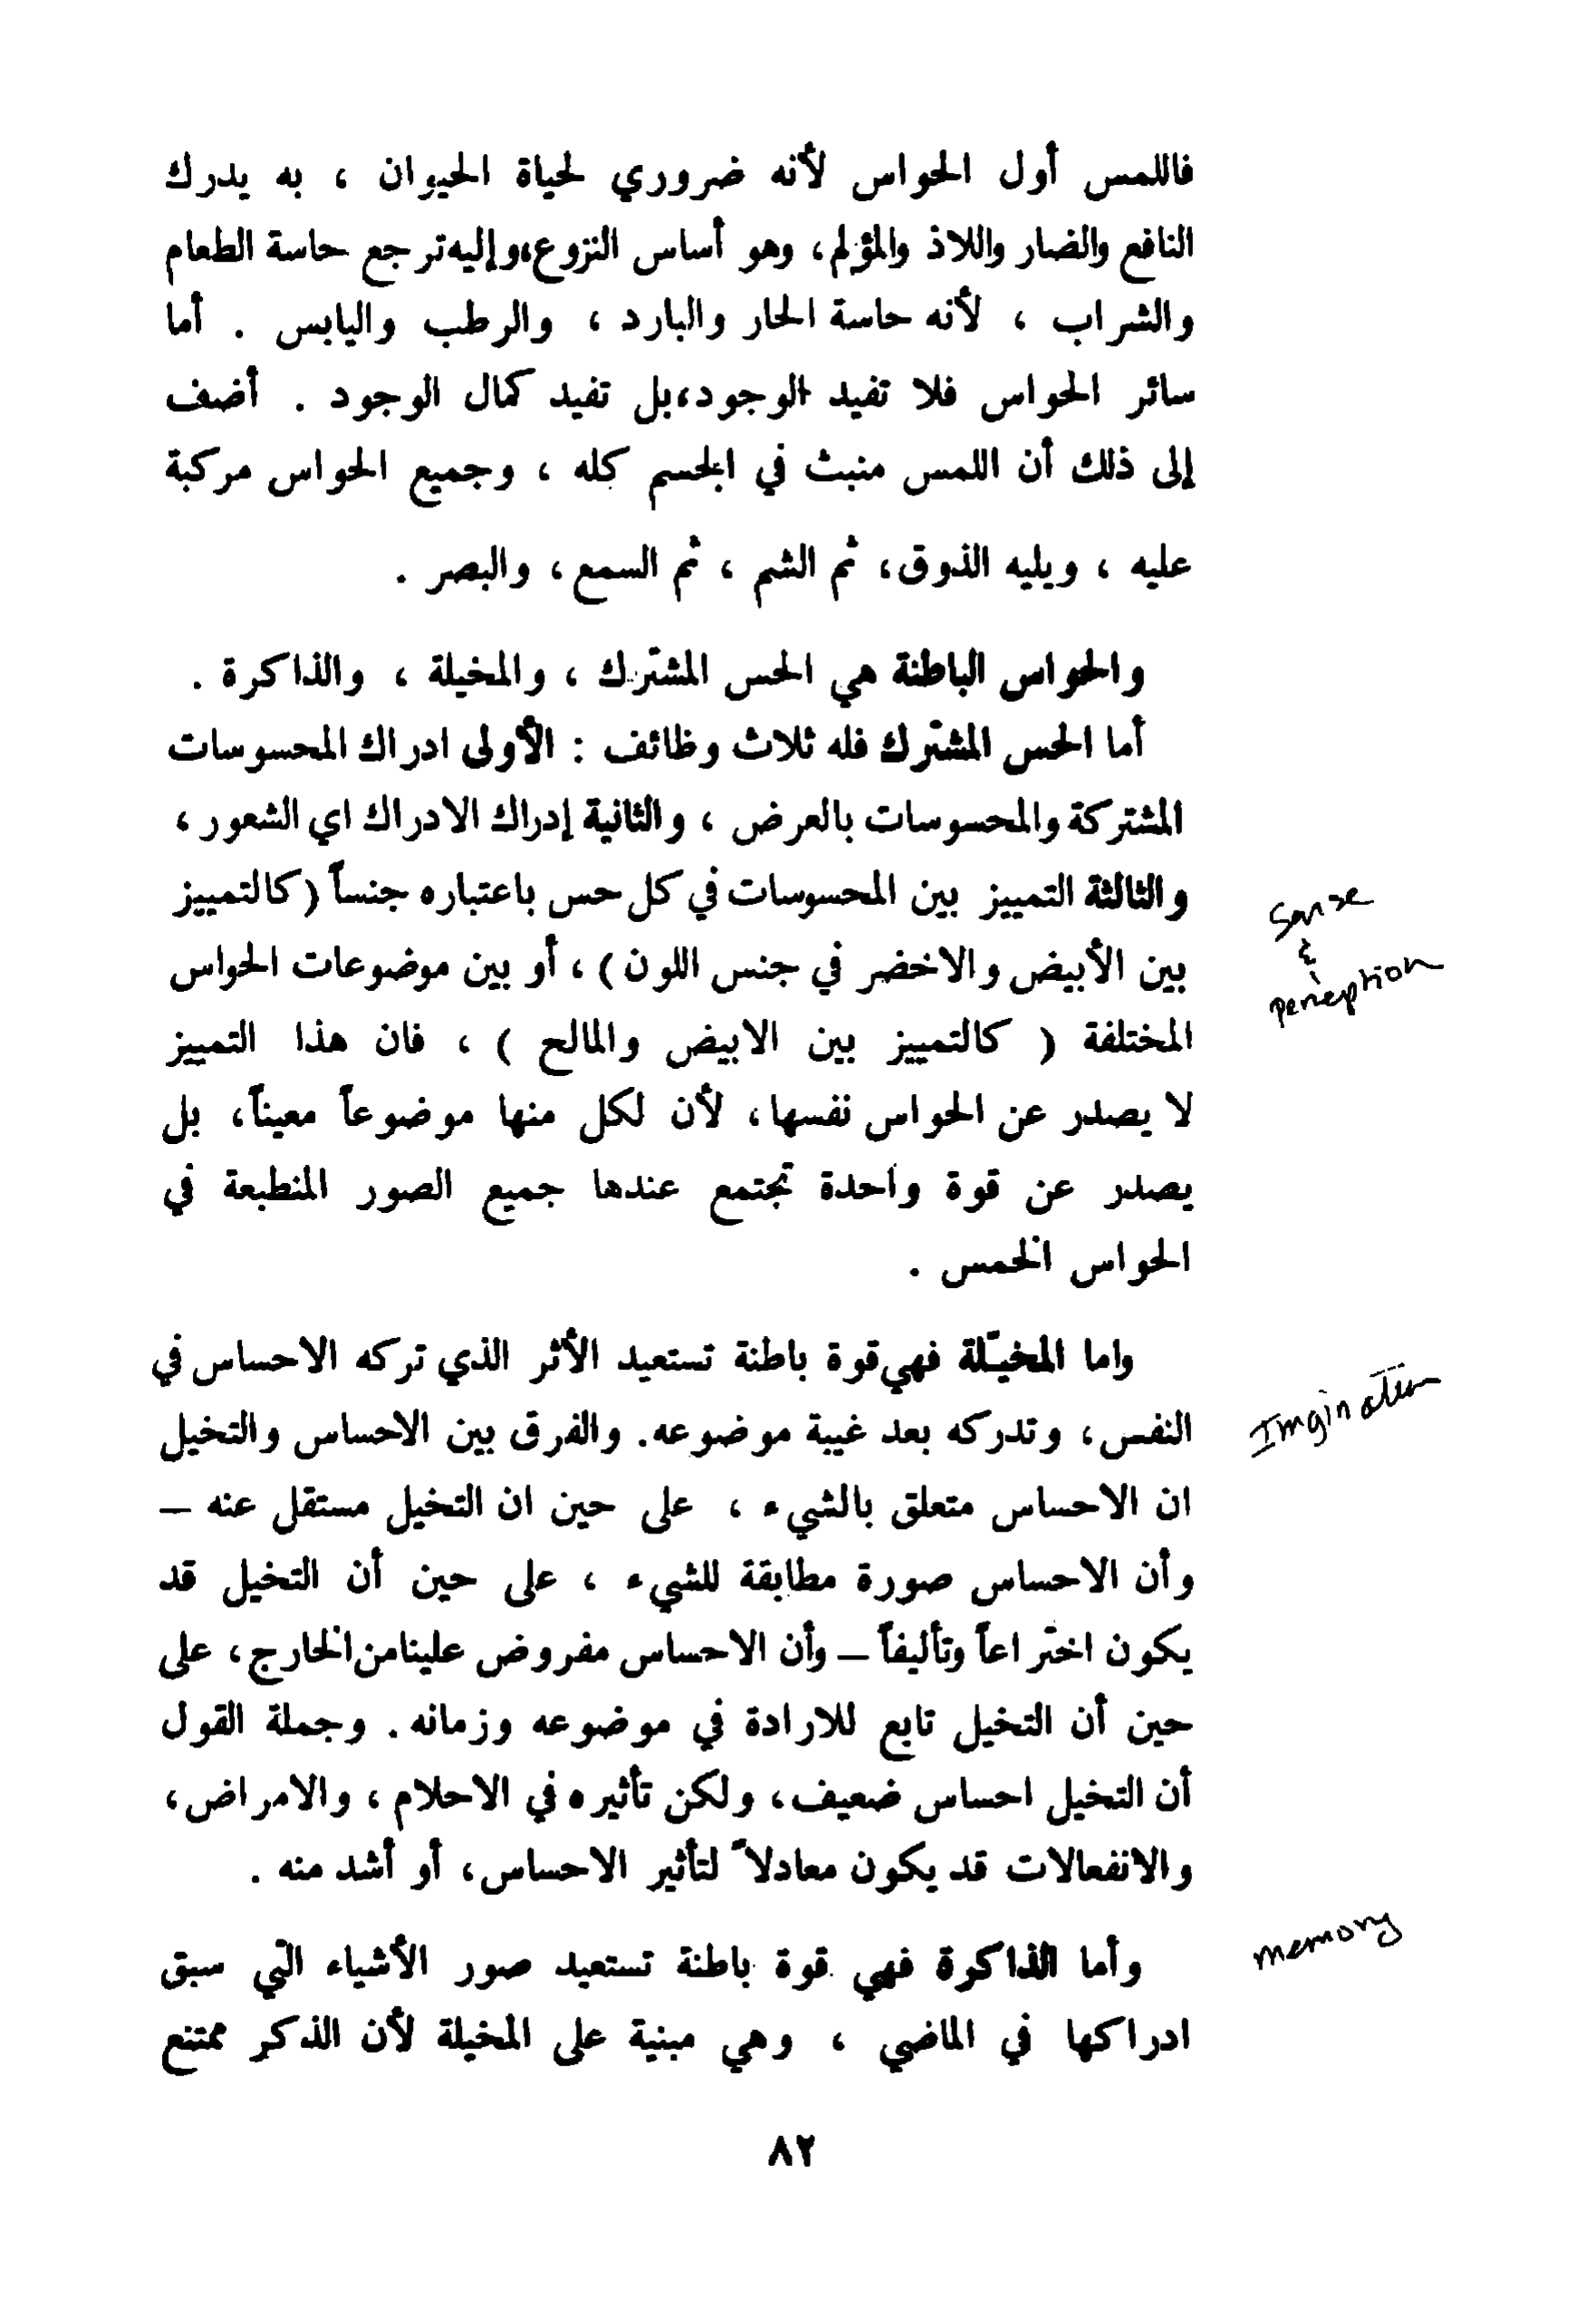 فاللمس أول الحواس لأنه ضروري لحياة الحيوان ، به يدرك
النافع والضار واللاذ والمؤلم، وهو أساس النزوع،وإليه ترجع حاسة الطعام
والشراب ، لأنه حاسة الحار والبارد ، والرطب واليابس . أما
سائر الحواس فلا تفيد الوجود،بل تفيد كمال الوجود . أضف
إلى ذلك أن اللمس منبث في الجسم كله ، وجميع الحواس مركبة
عليه ، ويليه الذوق، ثم الشم ، ثم السمع، والبصر .
والحواس الباطنة هي الحس المشترك ، والمخيلة ، والذاكرة .
أما الحس المشترك فله ثلاث وظائف : الأولى ادراك المحسوسات
المشتركة والمحسوسات بالعرض ، والثانية إدراك الادراك اي الشعور ،
والثالثة التمييز بين المحسوسات في كل حس باعتباره جنساً (كالتمييز
بين الأبيض والاخضر في جنس اللون ) ، أو بين موضوعات الحواس
المختلفة ( كالتمييز بين الابيض والمالح ) ، فان هذا التمييز
لا يصدر عن الحواس نفسها، لأن لكل منها موضوعاً معيناً، بل
يصدر عن قوة واحدة تجتمع عندها جميع الصور المنطبعة في
الحواس الخمس .
Sense
&
perception
واما المخيّلة فهي قوة باطنة تستعيد الأثر الذي تركه الاحساس في
النفس، وتدركه بعد غيبة موضوعه. والفرق بين الاحساس والتخيل
ان الاحساس متعلق بالشيء ، على حين ان التخيل مستقل عنه –
وأن الاحساس صورة مطابقة للشيء ، على حين أن التخيل قد
يكون اختراعاً وتأليفاً – وأن الاحساس مفروض علينا من الخارج، على
حين أن التخيل تابع للارادة في موضوعه وزمانه. وجملة القول
أن التخيل احساس ضعيف، ولكن تأثيره في الاحلام ، والامراض،
والانفعالات قد يكون معادلاً لتأثير الاحساس، أو أشد منه .
Imgination
وأما الذاكرة فهي قوة باطنة تستعيد صور الأشياء التي سبق
ادراكها في الماضي ، وهي مبنية على المخيلة لأن الذكر ممتنع
memory
٨٢